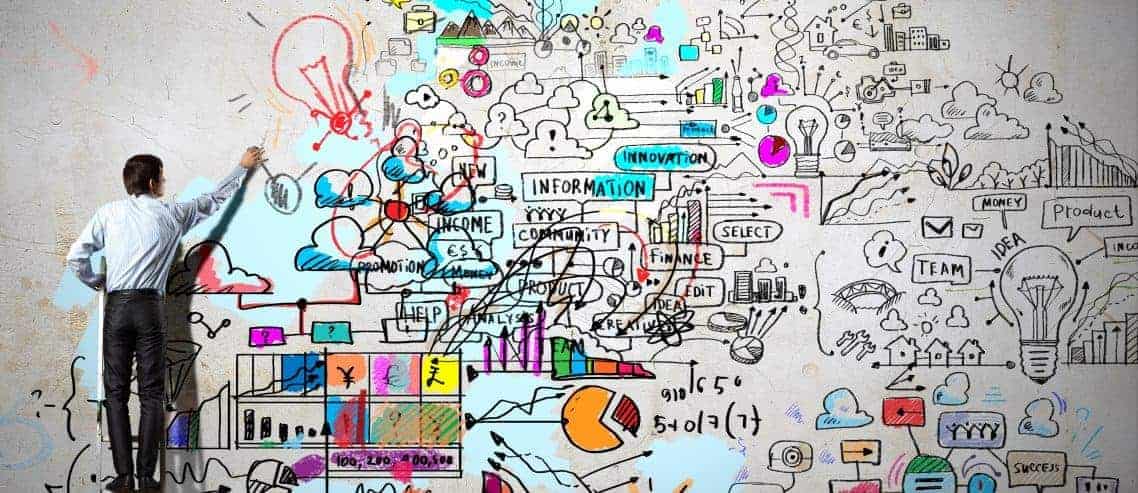 INCOME
IDEA
INNOVATION
NEW
INFORMATION
MONEY
Product
INCOME
COMMUNITY
SELECT
IDEA
€$€
FINANCE
TEAM
PROMOTION
MONEY
PRODUCT
EDIT
IDEA
HELP
ANALYSIS
CREATIVE
?
?
¥
€
£
910 1650
5+017(7)
100, 200, 400,500
SUCCESS